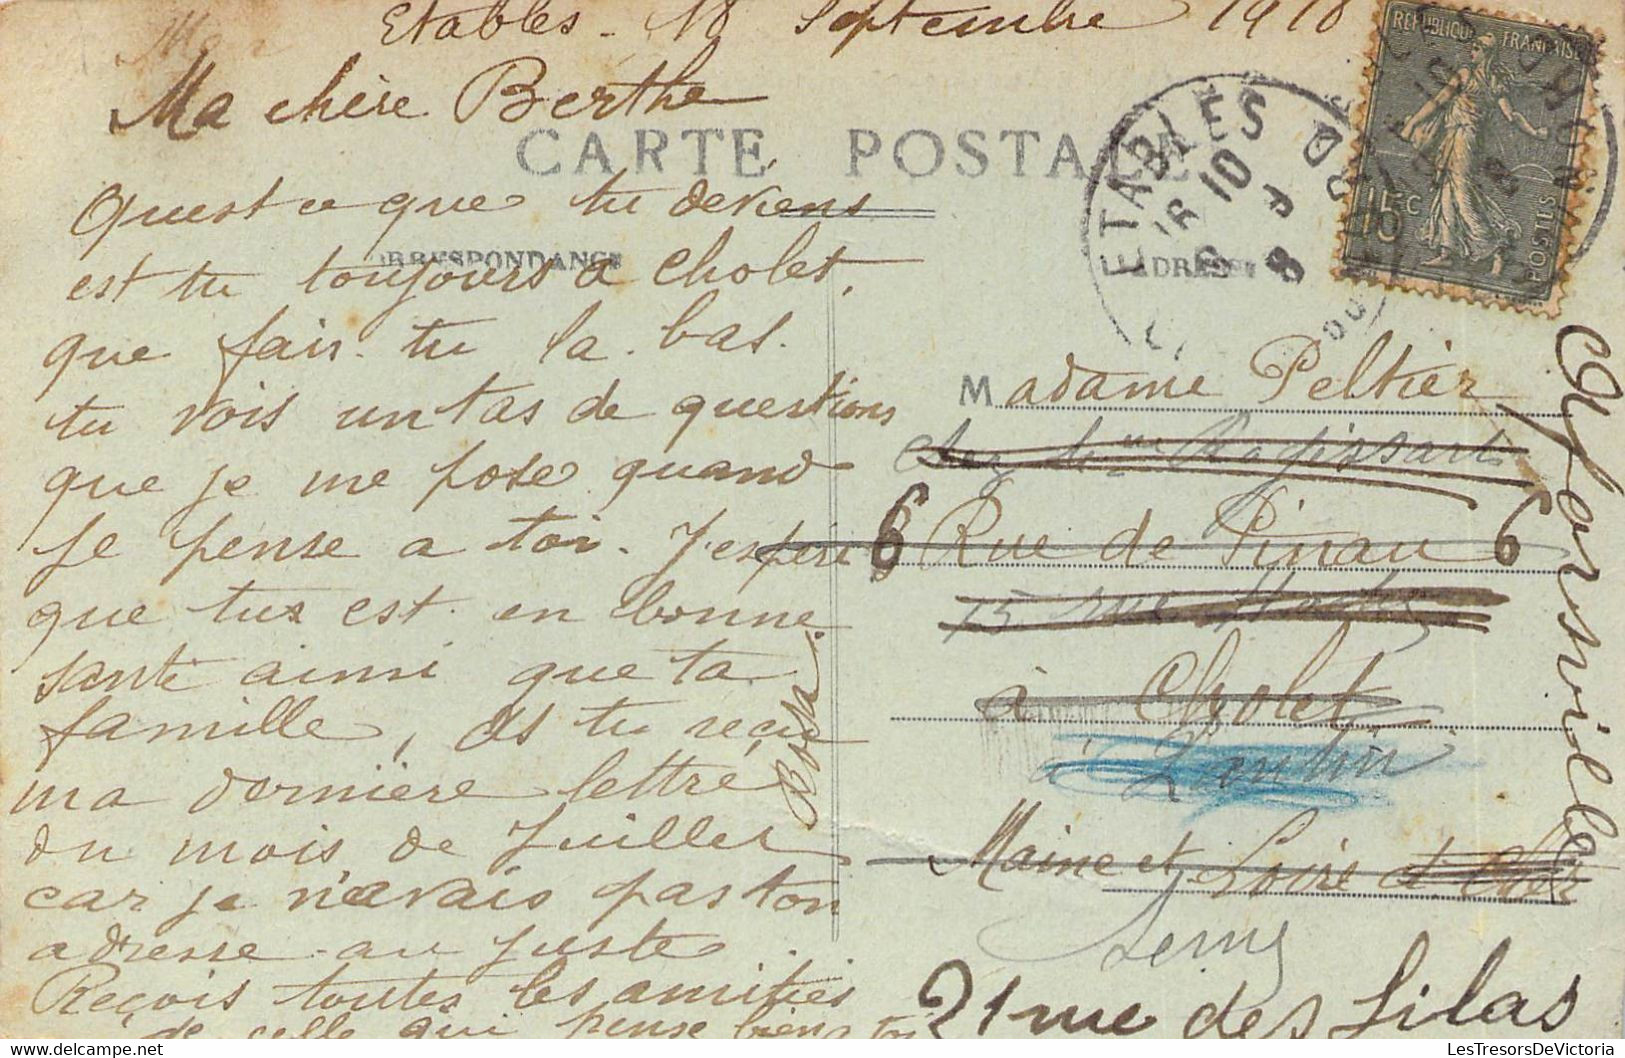 Etables - 18 Septembre 1918
Ma chère Berthe
CARTE POSTALE
Quest ce que tu deviens
est tu toujours a Cholet,
que fais-tu la bas.
tu vois un tas de questions
que je me pose quand
je pense a toi. J'espère
que tu est en bonne
santé ainsi que ta
famille, As tu reçu
ma dernière lettre
du mois de Juillet
car je n'avais pas ton
adresse au juste.
Reçois toutes les amitiés
de celle qui pense bien a toi
Rosa
ETABLES
REPUBLIQUE FRANÇAISE
15c
POSTES
Madame Peltier
Chez Ragissart
6 Rue de Pineau 6
15 rue
à Cholet
à Pantin
Maine et Loire
Seine
21 rue des Lilas
Alfortville
LesTresorsDeVictoria